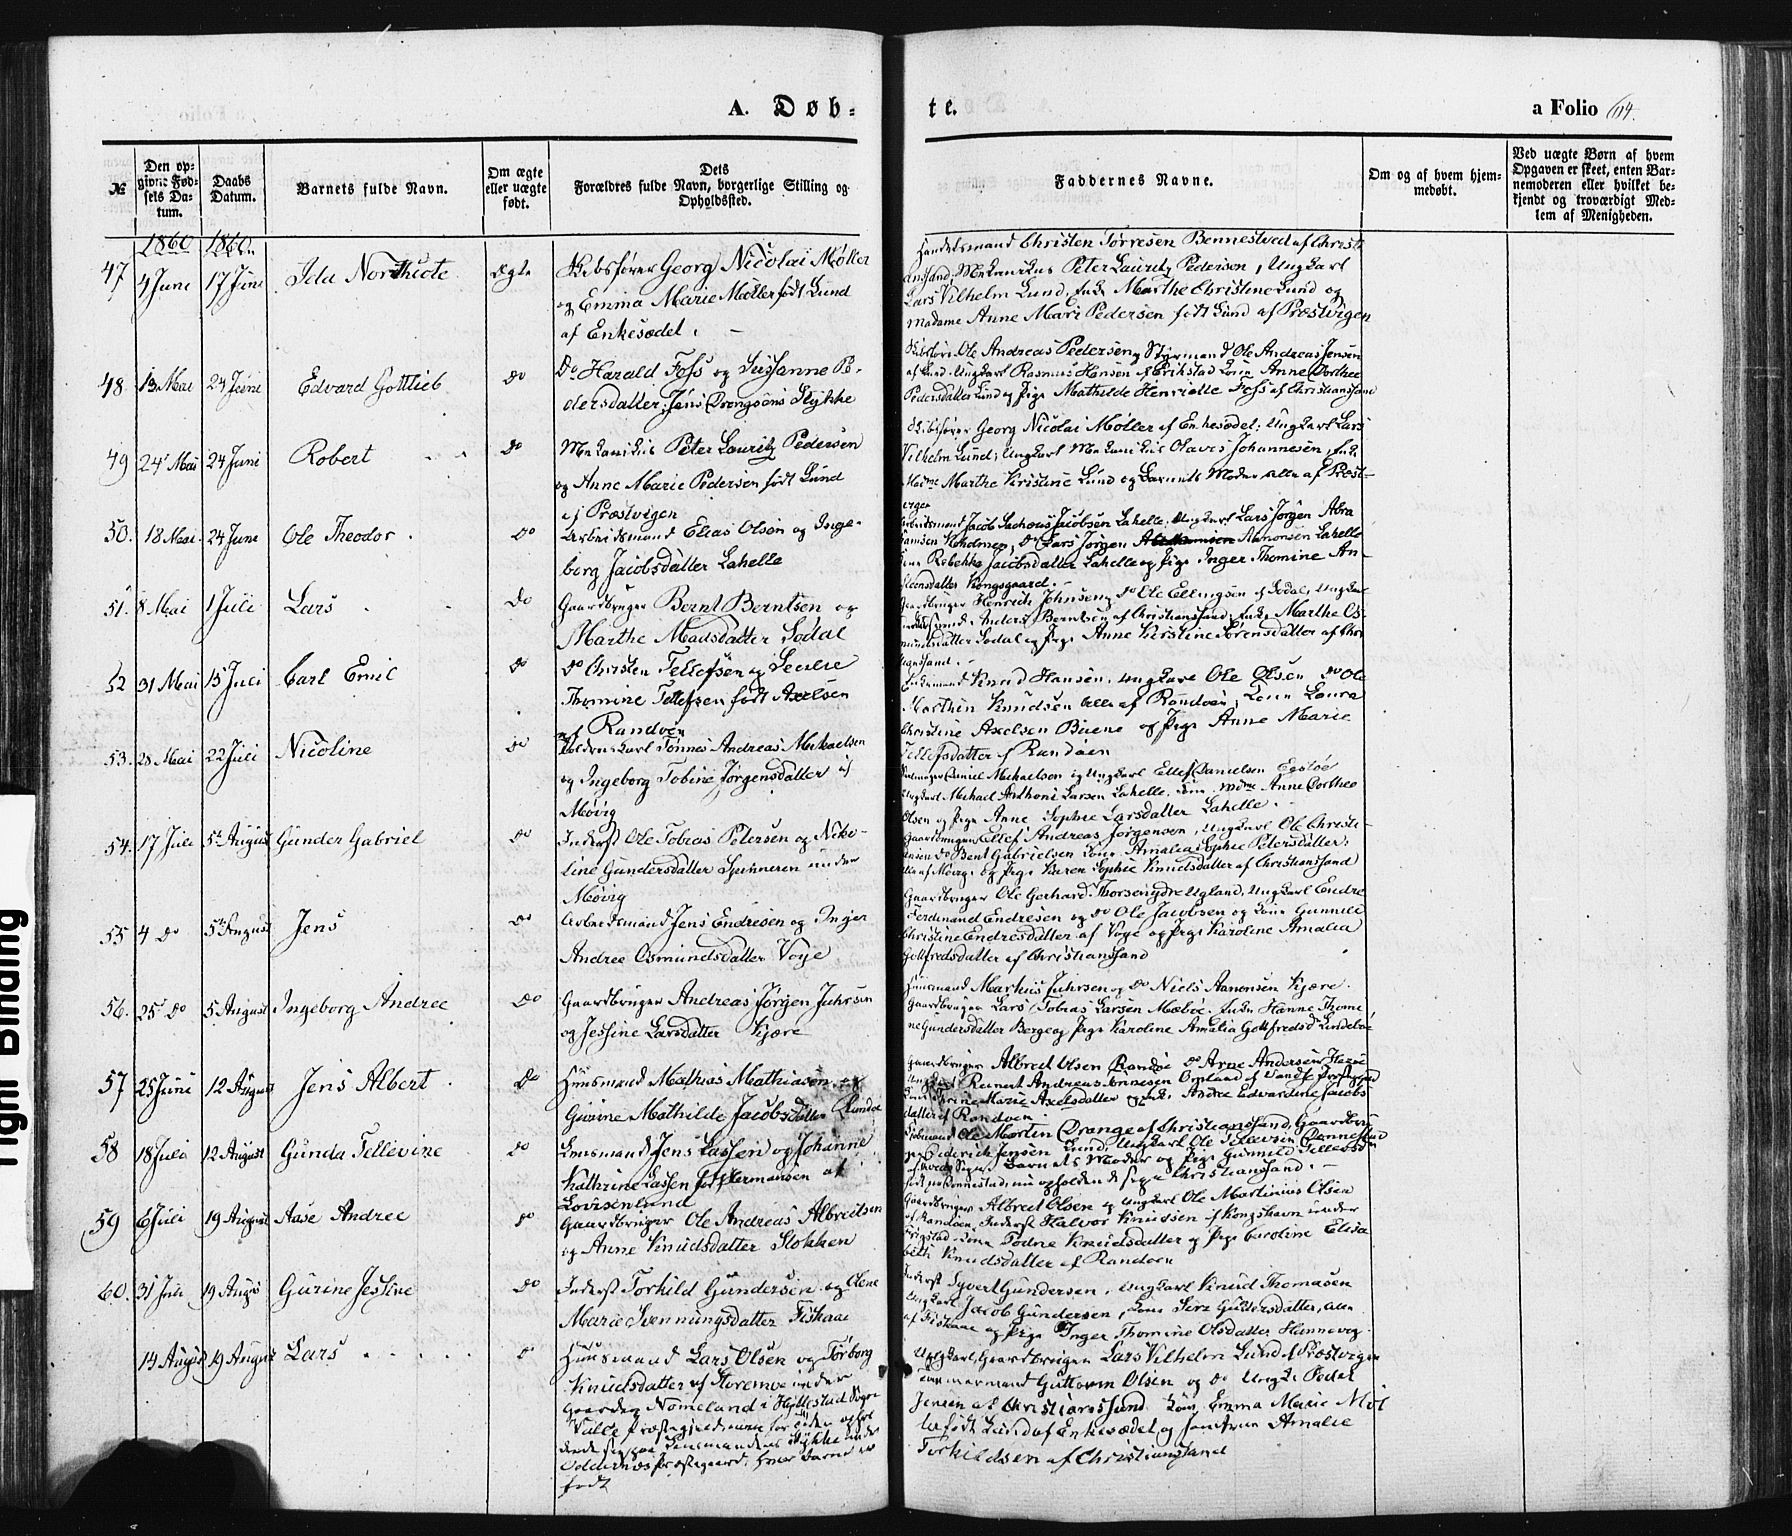 A. Døb-
te.
a Folio 104.
№
Den opgivne Fødsels Datum.
Daabs Datum.
Barnets fulde Navn.
Om ægte eller uægte født.
Dets Forældres fulde Navn, borgerlige Stilling og Opholdssted.
Faddernes Navne.
Om og af hvem hjemmedøbt.
Ved uægte Børn af hvem Opgaven er skeet, enten Barnemoderen eller hvilket bekjendt og troværdigt Medlem af Menigheden.
1860 1860
47 4 Juni 17 Juni Ida Ægte Skibsfører Georg Nicolai Møller
og Emma Marie Møller født Lund
af Enkesædet.
Handelsmand Christen Tørresen Bennestved af Christi
ansand, Mekanikus Peter Lauritz Pedersen, Ungkarl
Lars Vilhelm Lund, Enke Marthe Christine Lund og
Madame Anne Mari Pedersen født Lund af Præstvigen
48 13 Mai 24 Juni Edvard Gottlieb Do Do Harald Foss og Sussanne Pe-
dersdatter, Jens Drengsøns Stykke
Skibsfører Ole Andreas Pedersen, Styrmand Ole Andreas Jensen
af Lund, Ungkarl Rasmus Hansen af Eriksstad, Kone Anne Dorthee
Pedersdatter Lund og Pige Mathilde Henriette Foss af Christianssand
49 24 Mai 24 Juni Robert Do Mekanikus Peter Lauritz Pedersen
og Anne Marie Pedersen født Lund
af Præstvigen
Skibsfører Georg Nicolai Møller af Enkesædet, Ungkarl Lars
Vilhelm Lund, Ungkarl Mekanikus Olaves Johannesen, Enke
Madme Marthe Kristine Lund og Barnets Moder alle af Præst-
vigen
50. 18 Mai 24 Juni Ole Theodor Do Arbeidsmand Elias Olsen og Inge-
borg Jacobsdatter Lahelle
Arbeidsmand Jacob Jacobsen Lahelle, Ungkarl Lars Jørgen Abra
hamsen Do Lars Jørgen Aanonsen Lahelle
Kone Rebekka Jacobsdatter Lahelle og Pige Inger Thomine An-
Kongsgaard.
51. 8 Mai 1 Juli Lars Do Gaardbruger Bernt Berntsen og
Marthe Madsdatter Sødal
Gaardbruger Henrich Johnsen, Do Ole Ellingsen af Sødal, Ungkarl
Anders Berntsen af Christianssand, Enke Marthe Os-
mundsdatter Sødal og Pige Anne Kirstine Sørensdatter af Chri
stianssand.
52 31 Mai 15 Juli Carl Emil Do Do Christen Tellefsen og Secilie
Thomine Tellefsen født Axelsen
af Randøen
Knud Hansen, Ungkarl Ole Olsen, Do Ole
Marthin Knudsen alle af Randøen, Kone Laura
Christine Axelsen Buene og Pige Anne Marie
Tellefsdatter af Randøen
53. 28 Mai 22 Juli Nicoline Do Tønnes Andreas Mikaelsen
og Ingeborg Tobine Jørgensdatter af
Møvig
Daniel Mikaelsen og Ungkarl Ellef Danielsen
Ungkarl Mikael Anthoni Larsen Lahelle, Anne Dorthea
Olsen og Pige Anne Sophie Larsdatter Lahelle.
54. 17 Juli 5te August Gunder Gabriel Do Inderst Ole Tobias Petersen og Niko-
line Gundersdatter under
Møvig
Gaardbruger Ellef Andreas Jørgensen, Ungkarl Ole Christi-
ansen, Do Bent Gabrielsen, Kone Amalia Sophie Petersdatter,
alle af Møvig, og Pige Karen Sophie Knudsdatter af Christianssand
55 4 Do 5te August Jens Do Arbeidsmand Jens Endresen og Inger
Andree Osmundsdatter Voje
Gaardbruger Ole Gerhard Thorsen ydre Ugland, Ungkarl Endre
Ferdinand Endresen og Do Ole Jacobsen og Kone Gunnild
Christine Endresdatter af Voje og Pige Karoline Amalia
Gottfredsdatter af Christianssand
56. 25 Do 5 August Ingeborg Andree Do Gaardbruger Andreas Jørgen Juhrsen
og Jessine Larsdatter Kjære
Huusmand Markus Juhrsen og Do Niels Aanonsen Kjære.
Gaardbruger Lars Tobias Larsen Mæbøe, Enke Hanne Thomi
ne Gundersdatter Berge og Pige Karoline Amalia Gottfredsd.
57 25 Juni 12 August Jens Albert Do Huusmand Mathias Mathiasen og
Gurine Mathilde Jacobsdatter Randøe
Gaardbruger Albret Olsen Randøe, Do Arne Andersen
Reinert Andreas Tønnesen Omland af
Marie Axelsdatter og Andrea Edvardine Jacobs
datter af Randøen
58 18 Juli 12 August Gunda Tellevine Do Huusmand Jens Lassen og Johanne
Kathrine Lassen født Hermansen af
Lovisenlund
Ole Morten Drange af Christianssand, Gaardbru
ger Diderich Jensen Lund, Ungkarl Ole Tellevsen
Barnets Moder og Pige Gunnild Tellevsd
opholdende sig i Christianssand.
59 6 Juli 19 August Aase Andree Do Gaardbruger Ole Andreas Albretsen
og Anne Knudsdatter Stokken
Gaardbruger Albret Olsen og Ungkarl Ole Martinius Olsen
af Randøen, Inderst Halvor Knudsen af Kongshavn under
Frigstad, Kone Todne Knudsdatter og Pige Caroline Elisa
beth Knudsdatter af Randøen
60. 31 Juli 19 August Gurine Jessine Do Inderst Torkild Gundersen og Olene
Marie Svennungsdatter Fiskaae
Inderst Syvert Gundersen, Ungkarl Knud Thomasen
Ungkarl Jacob Gundersen, Kone Siri Guttersdatter, alle
af Fiskaae og Pige Inger Thomine Olsdatter Hannevig.
14 August 19 August Lars Do Huusmand Lars Olsen og Torborg
Knudsdatter af under
Gaarden Nomeland i Hyllestad Sogn
Valle Præstegjeld, men for Tiden ophol
dende sig paa Stykke under
Oddernæs Præstegaard, hvor Barnet er
født
Ungkarl, Gaardbruger Lars Vilhelm Lund af Præstvigen
Tømmermand Guttorm Olsen og Do Ungk. Peder
Jensen af Christianssand, Kone Emma Marie Møl
ler født Lund af Enkesædet og Jomfrue Amalie
Torkildsen af Christianssand
Tight Binding